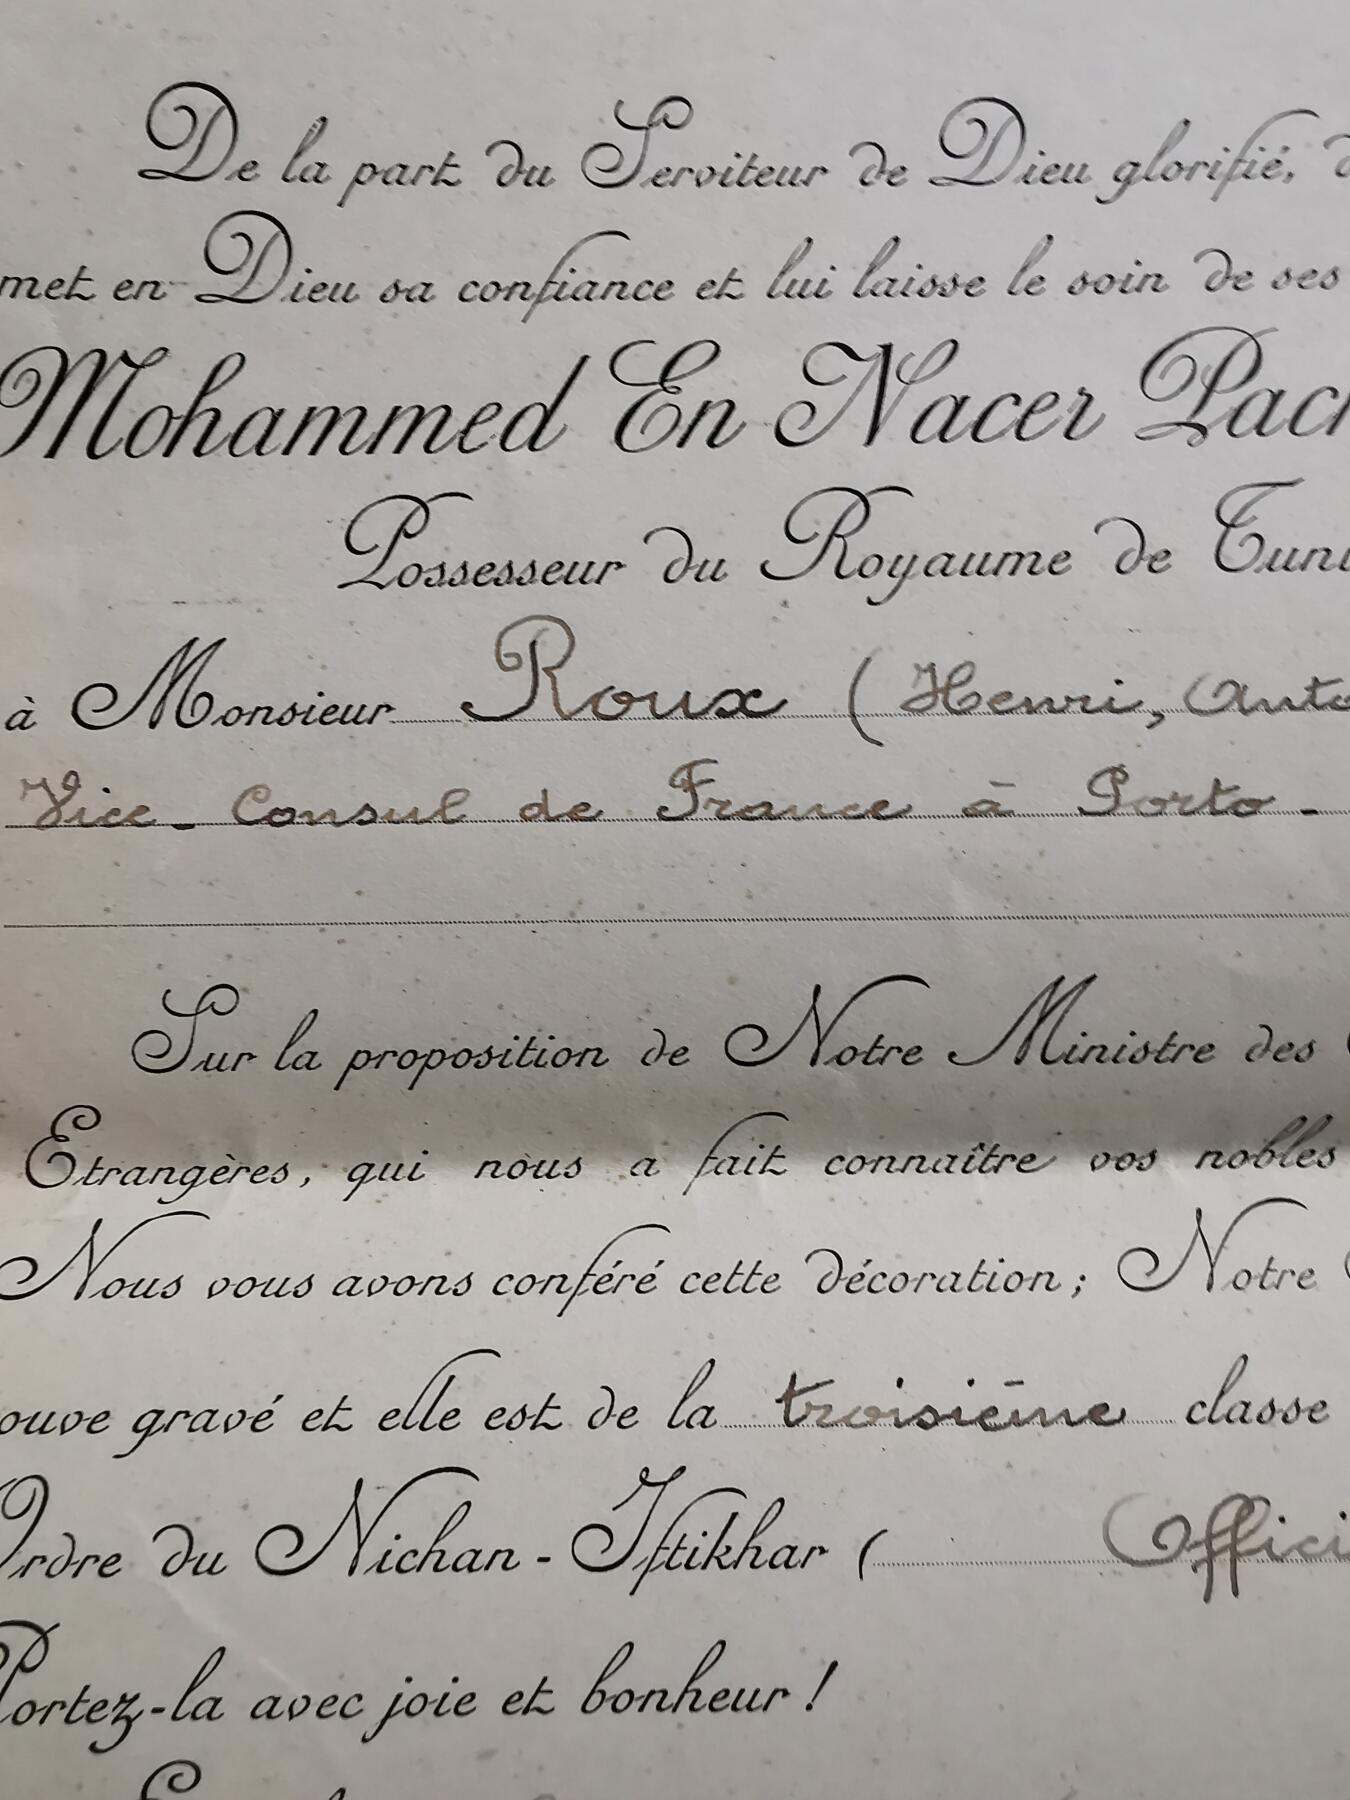 De la part du Serviteur de Dieu glorifié, d
met en Dieu sa confiance et lui laisse le soin de ses
Mohammed En Nacer Pach
Possesseur du Royaume de Tuni
à Monsieur Roux (Henri, Anto
Vice-Consul de France à Porto -
Sur la proposition de Notre Ministre des
Etrangères, qui nous a fait connaître vos nobles
Nous vous avons conféré cette décoration; Notre
ouve gravé et elle est de la troisième classe
Ordre du Nichan-Iftikhar ( Offici
Portez-la avec joie et bonheur!